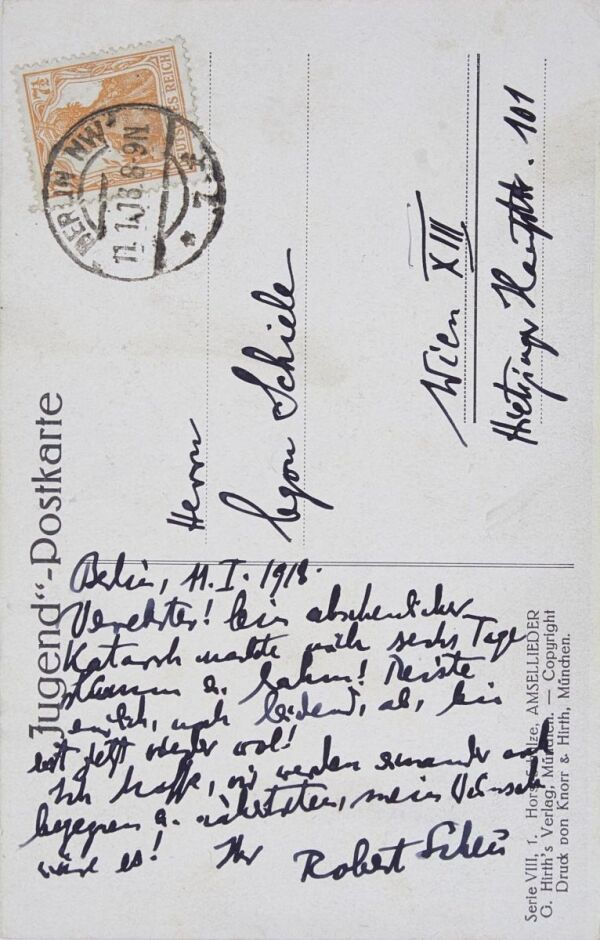 7½
DEUTSCHES REICH
BERLIN NW
11.1.18.8-9N
* 7 *
„Jugend“-Postkarte
Herrn
Egon Schiele
Wien XIII
Hietzinger Hauptstr. 101
Berlin, 11.I.1918.
Verehrter! Ein abscheulicher
Katarrh machte mich sechs Tage
stumm u. lahm! Reiste
endlich, noch leidend, ab, bin
erst jetzt wieder wol!
Ich hoffe, wir werden einander
begegnen u. mein Wunsch
wäre es! Ihr Robert
Serie VIII, 1. Horst-Schulze, AMSELLIEDER
G. Hirth's Verlag, München. — Copyright
Druck von Knorr & Hirth, München.